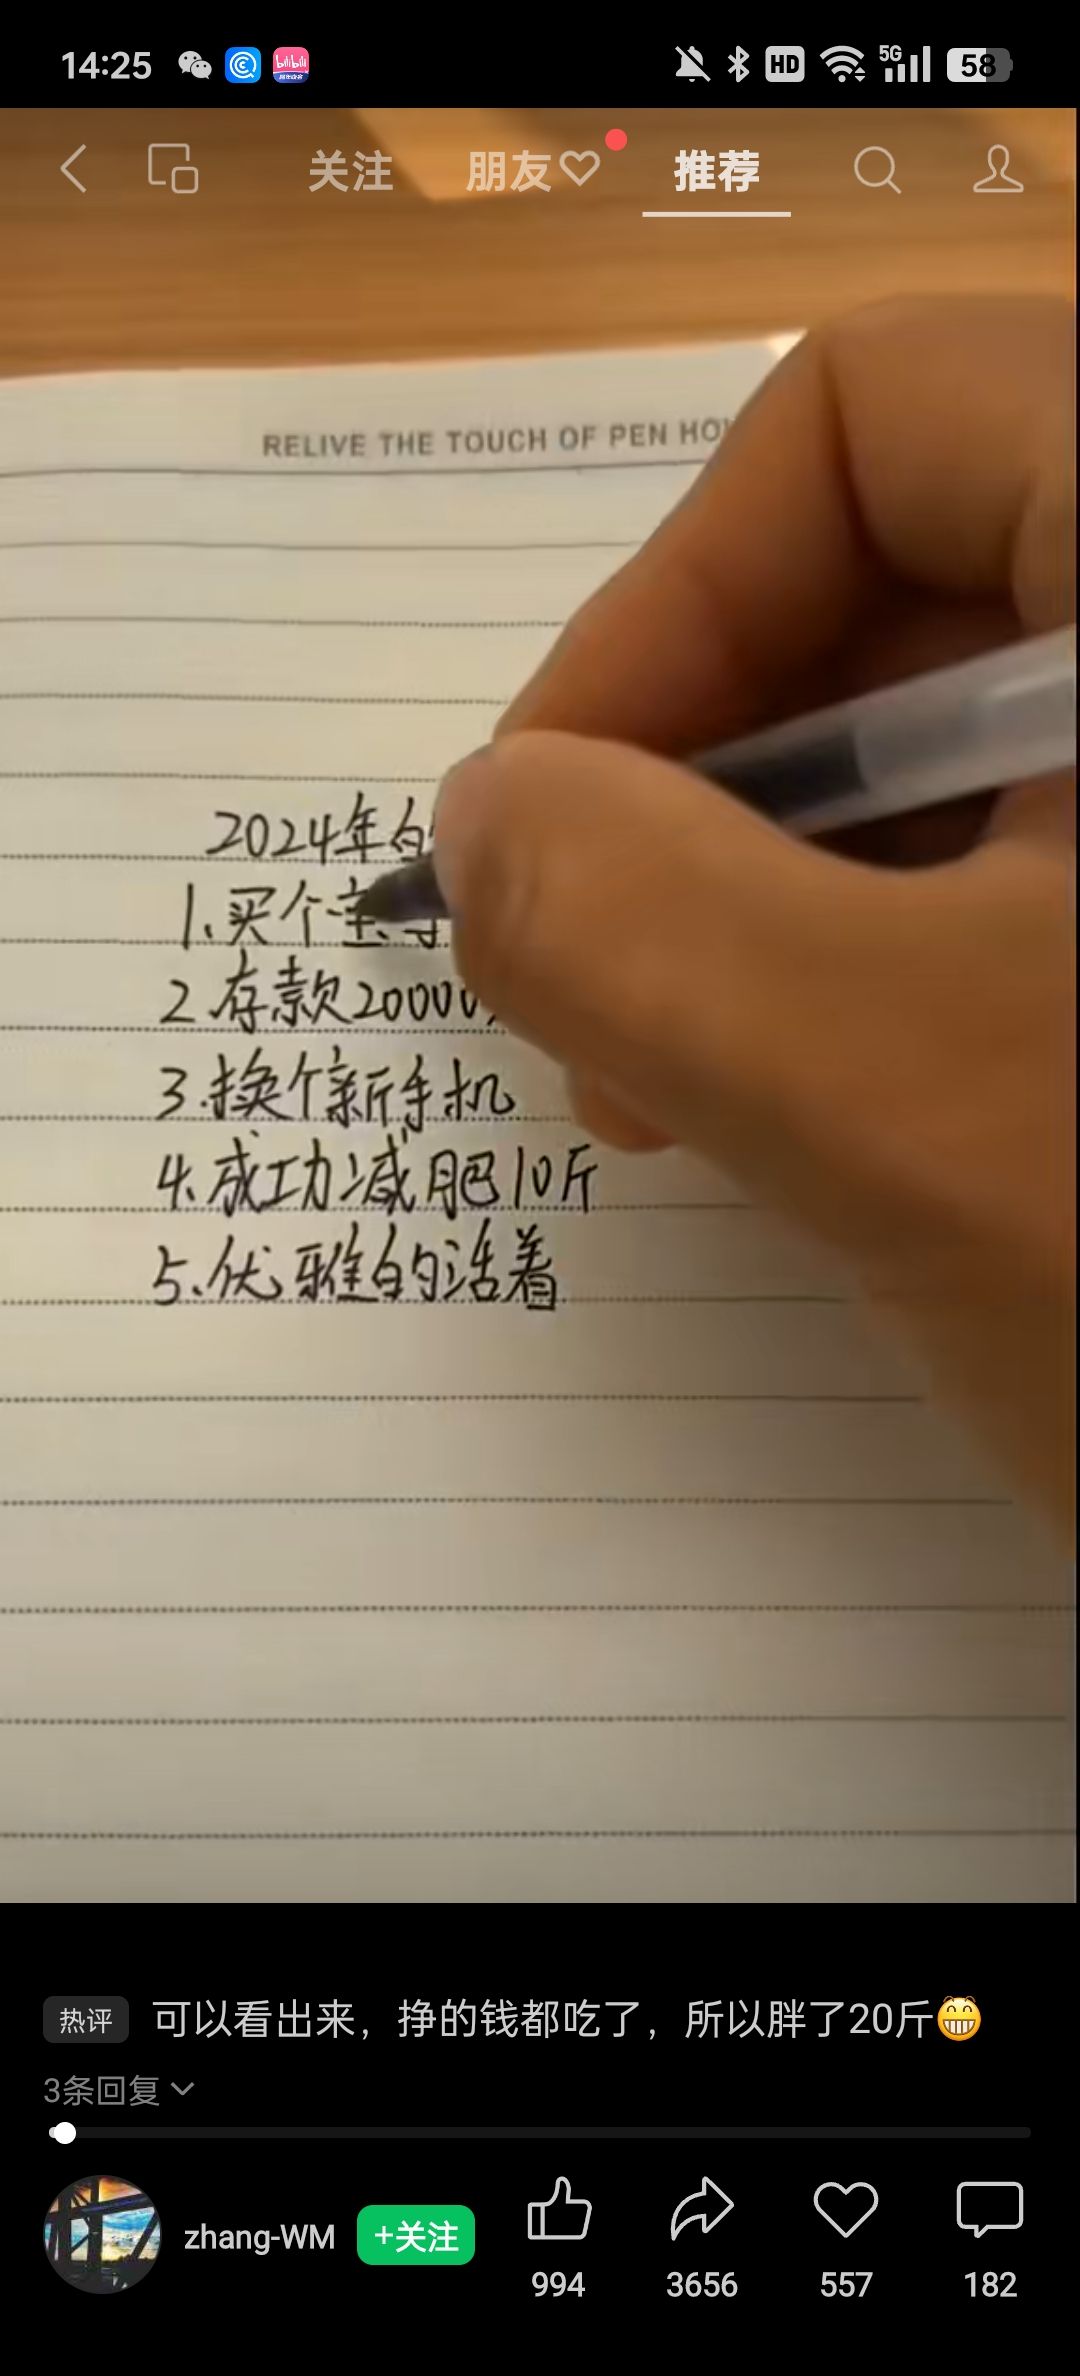 14:25
HD
5G
58
关注 朋友 推荐
RELIVE THE TOUCH OF PEN
2024年的
1.买个宝马
2.存款20000
3.换个新手机
4.成功减肥10斤
5.优雅的活着
热评 可以看出来，挣的钱都吃了，所以胖了20斤😁
3条回复
zhang-WM +关注
994 3656 557 182